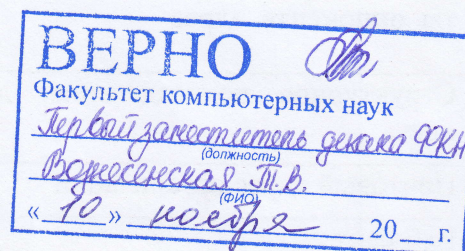 ВЕРНО
Факультет компьютерных наук
Первый заместитель декана ФКН
(должность)
Вознесенская Т.В.
(ФИО)
«10» ноября 20 г.